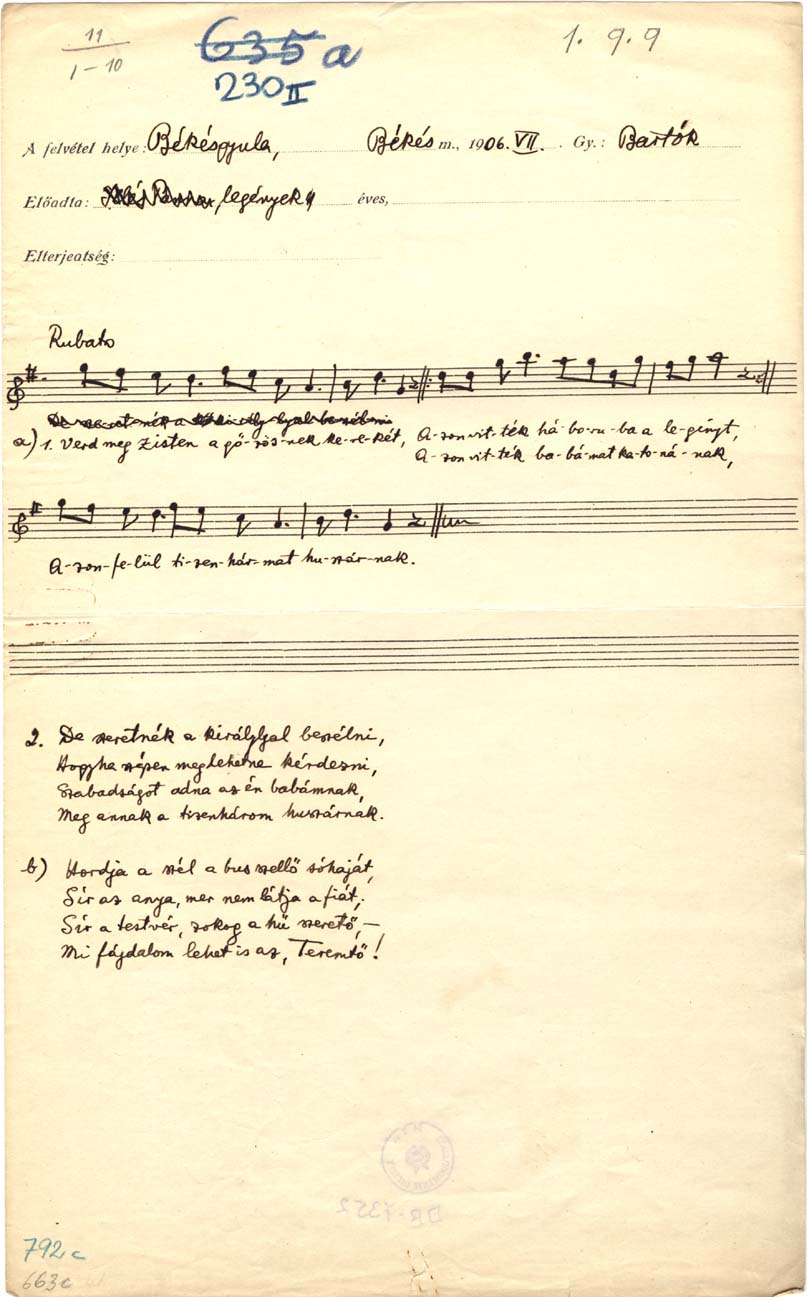 11
1–10
635 a
230 II
1. 9. 9
A felvétel helye: Békésgyula, Békés m., 1906. VII. Gy.: Bartók
Előadta: legények éves,
Elterjeatség:
Rubato
De szeretnék a királylyal beszélni
a) 1. Verd meg Zisten a gő-zös-nek ke-re-két, A-zon vit-ték há-bo-ru-ba a le-gínyt,
A-zon vit-ték ba-bá-mat ka-to-ná-nak,
A-zon-fe-lül ti-zen-hár-mat hu-szár-nak.
2. De szeretnék a királylyal beszélni,
Hogyha szépen meglehetne kérdezni,
Szabadságot adna az én babámnak,
Meg annak a tizenhárom huszárnak.
b) Hordja a szél a bus szellő sóhaját,
Sír az anya, mer nem látja a fiát,
Sír a testvér, zokog a hű szerető,—
Mi fájdalom lehet is az, Teremtő!
BR-7352
792c
663c